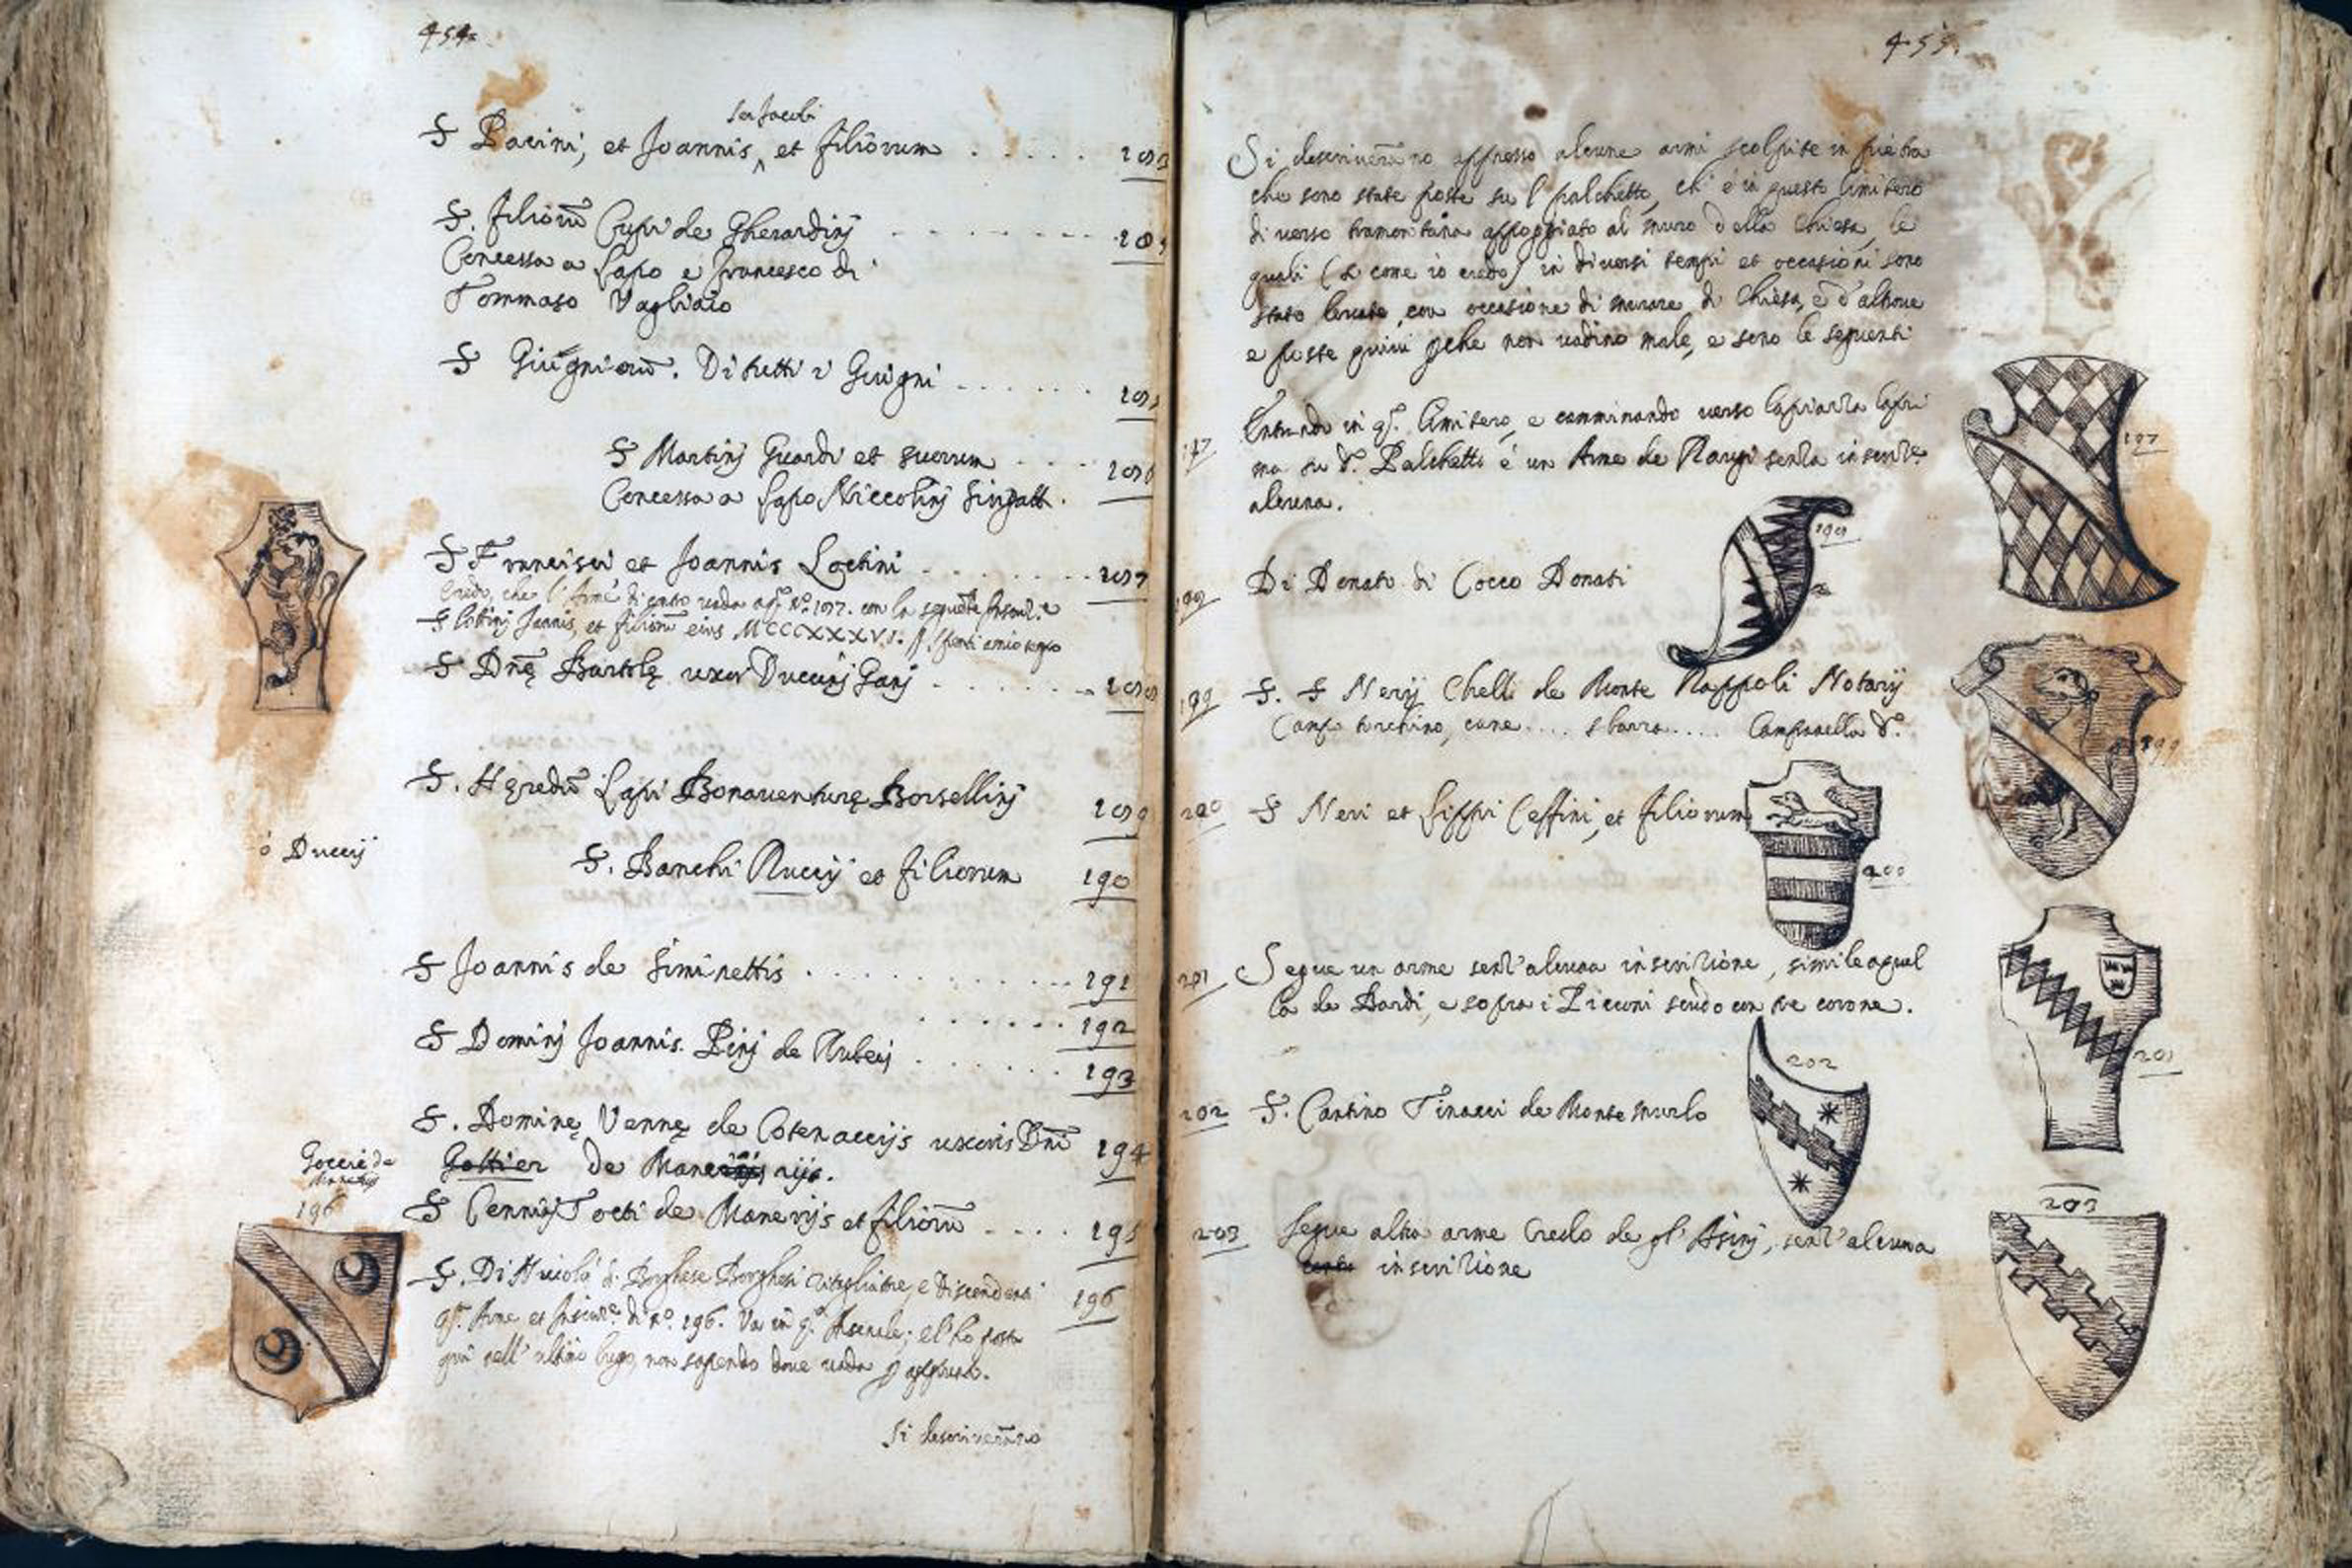 454
Ser Jacobi
S Pacini, et Joannis et filiorum . . . . . 183
S. filiorū Cupi de Gherardinj . . . . . 184
Concessa a Lapo e francesco di
Tommaso Vagliaio
S Giugniorū. Di tutti i Giugni . . . . . 185
S Martinj Guardi et suorum . . . 186
Concessa a Lapo Niccolinj
S Francisci et Joannis Loctini . . . . . 187
Credo, che l'Arme di vada con la
S Lottinj Jannis, et filiorū eius MCCCXXXVI.
S Dnę Bartolę uxor Duccinj . . . . . 188
S. Hęredū Lapi Bonaventurę Borsellinj 189
ò Duccij
S. Banchi Ruccij et filiorum 190
S Joannis de Siminettis . . . . . 191
. . . . . 192
S Dominj Joannis Pinj de Rubeis . . . . .
193
S. Dominę Vannę de Costenaccijs uxoris Dnī 194
Gottier de
S Cennis Tocti de Manerijs et filiorū . . . . 195
196
S. Di Nicolò di Borghese Borghesi e Discendenti 196
Arme et di nº. 196. Va in el ho posta
qui nell' ultimo luogo, non sapendo dove vada
Si descriverāno
455.
Si descriverāno appresso alcune armi scolpite in pietra
che sono state poste su l' palchetto, ch' è in questo Cimitero
di verso tramontana appoggiato al muro della Chiesa, le
quali (si come io credo) in diversi tempi et occasioni sono
state levate, con occasione di murare di Chiesa, e d'altrove
e poste quivi pche non vadino male, e sono le seguenti
197 Entrando in Cimitero, e camminando verso la piazza la pri
ma su Palchetto è un Arme de senza
alcuna.
197
198
Di Donato di Cocco Donati
199 S. S Nerij Chelli de Monte Rappoli Notarij
Campo turchino, cane.... sbarra..... Campanella
199
200 S Neri et Lippi Ceffini, et filiorum
200
201 Segue un arme senz'alcuna inscrizione, simile a quel
la de Bardi, e sopra i Picconi scudo con tre corone.
201
202
202 S. Cantino Tinacci de Montemurlo
203
203 Segue altra arme Credo de gl' Asinj, senz'alcuna
inscrizione